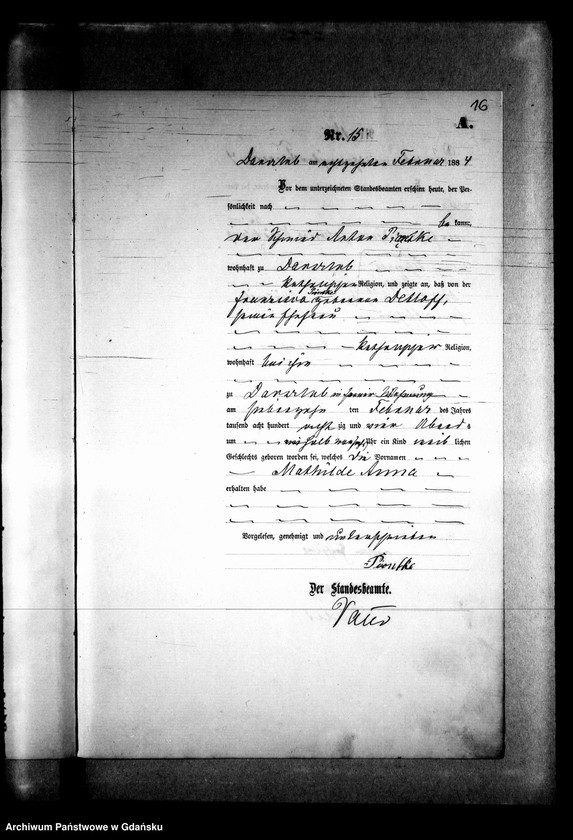 16
A.
Nr. 15
am achtzehnten Februar 1884
Vor dem unterzeichneten Standesbeamten erschien heute, der Per-
sönlichkeit nach
be kannt,
der Schmied Anton Piontke
wohnhaft zu
katholischer Religion, und zeigte an, daß von der
Piontke
Franziska geborenen Detloff,
seiner Ehefrau
katholischer Religion,
wohnhaft bei ihm
zu in seiner Wohnung
am siebzehn ten Februar des Jahres
tausend acht hundert acht zig und vier Abends
um Uhr ein Kind weib lichen
Geschlechts geboren worden sei, welches die Vornamen
Mathilde Anna
erhalten habe
Vorgelesen, genehmigt und unterschrieben
Piontke
Der Standesbeamte.
Archiwum Państwowe w Gdańsku